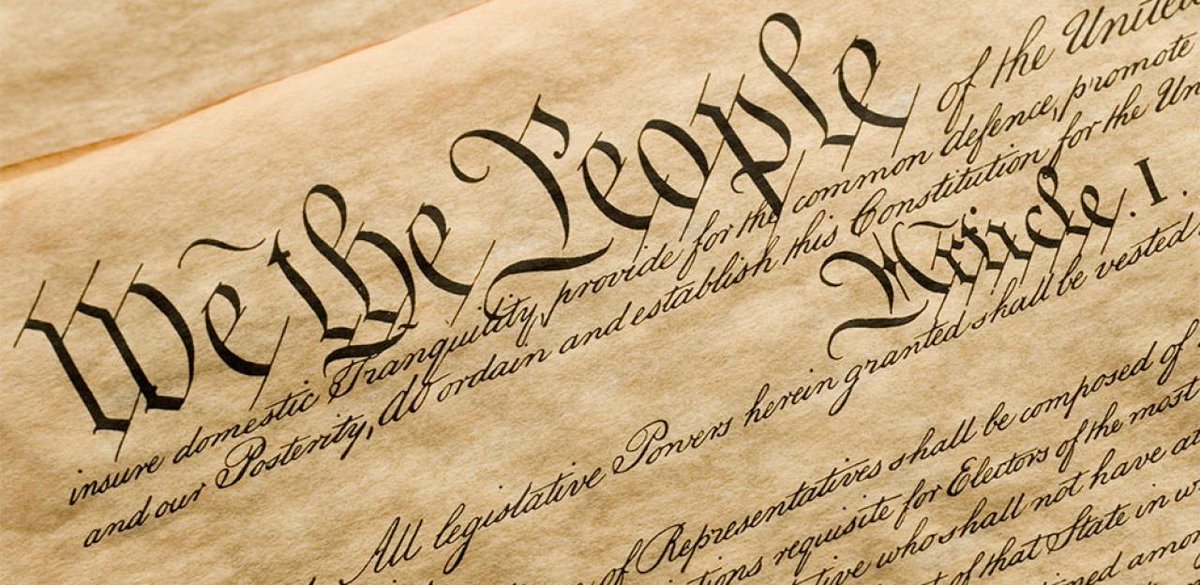 We the People of the United
insure domestic Tranquility, provide for the common defence, promote
and our Posterity, do ordain and establish this Constitution for the Un
Article. I.
All legislative Powers herein granted shall be vested
of Representatives shall be composed of
tions requisite for Electors of the most
tive who shall not have at
of that State in w
ned amon